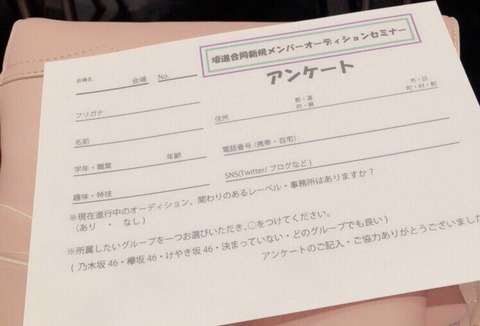 坂道合同新規メンバーオーディションセミナー
アンケート
会場名 会場 No.
フリガナ
名前
学年・職業 年齢
趣味・特技
住所 都・道 府・県 市・区 町・村・郡
電話番号(携帯・自宅)
SNS(Twitter/ブログなど)
※現在進行中のオーディション、関わりのあるレーベル・事務所はありますか?
(あり ・ なし)
※所属したいグループを一つお選びいただき、○をつけてください。
(乃木坂46・欅坂46・けやき坂46・決まっていない・どのグループでも良い)
アンケートのご記入・ご協力ありがとうございました